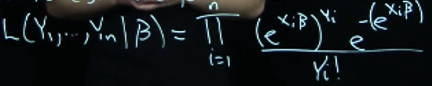 L(Y₁,...,Yₙ|β) = ∏ᵢ₌₁ⁿ (e^{Xᵢβ})^{Yᵢ} e^{-(e^{Xᵢβ})} / Yᵢ!